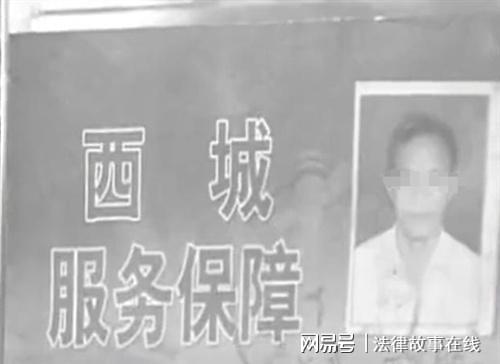 西城
服务保障
网易号 | 法律故事在线